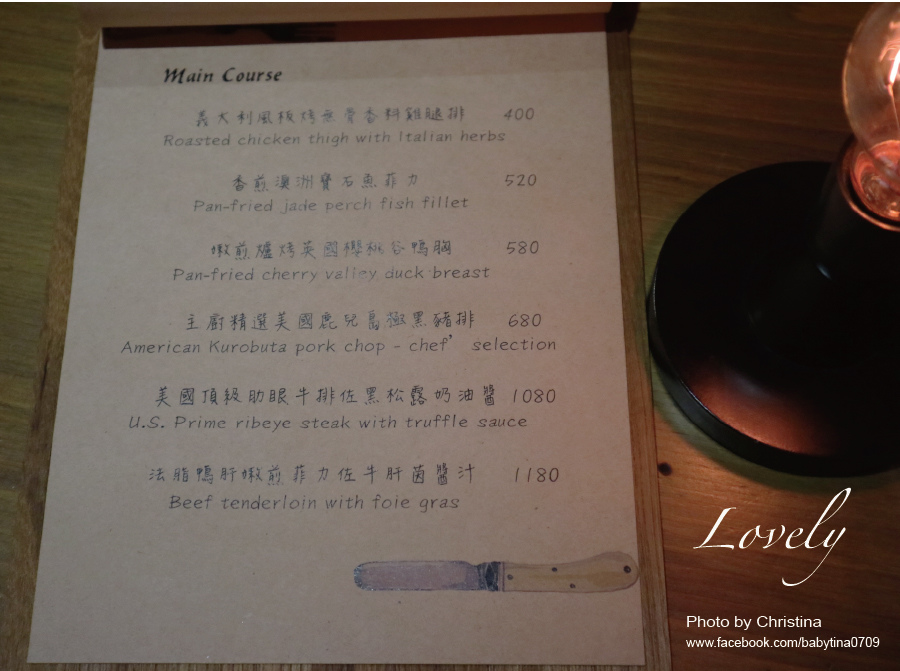 Main Course
義大利風板烤無骨香料雞腿排 400
Roasted chicken thigh with Italian herbs
香煎澳洲寶石魚菲力 520
Pan-fried jade perch fish fillet
嫩煎爐烤英國櫻桃谷鴨胸 580
Pan-fried cherry valley duck breast
主廚精選美國鹿兒島極黑豬排 680
American Kurobuta pork chop - chef' selection
美國頂級肋眼牛排佐黑松露奶油醬 1080
U.S. Prime ribeye steak with truffle sauce
法脂鴨肝嫩煎菲力佐牛肝菌醬汁 1180
Beef tenderloin with foie gras
Lovely
Photo by Christina
www.facebook.com/babytina0709